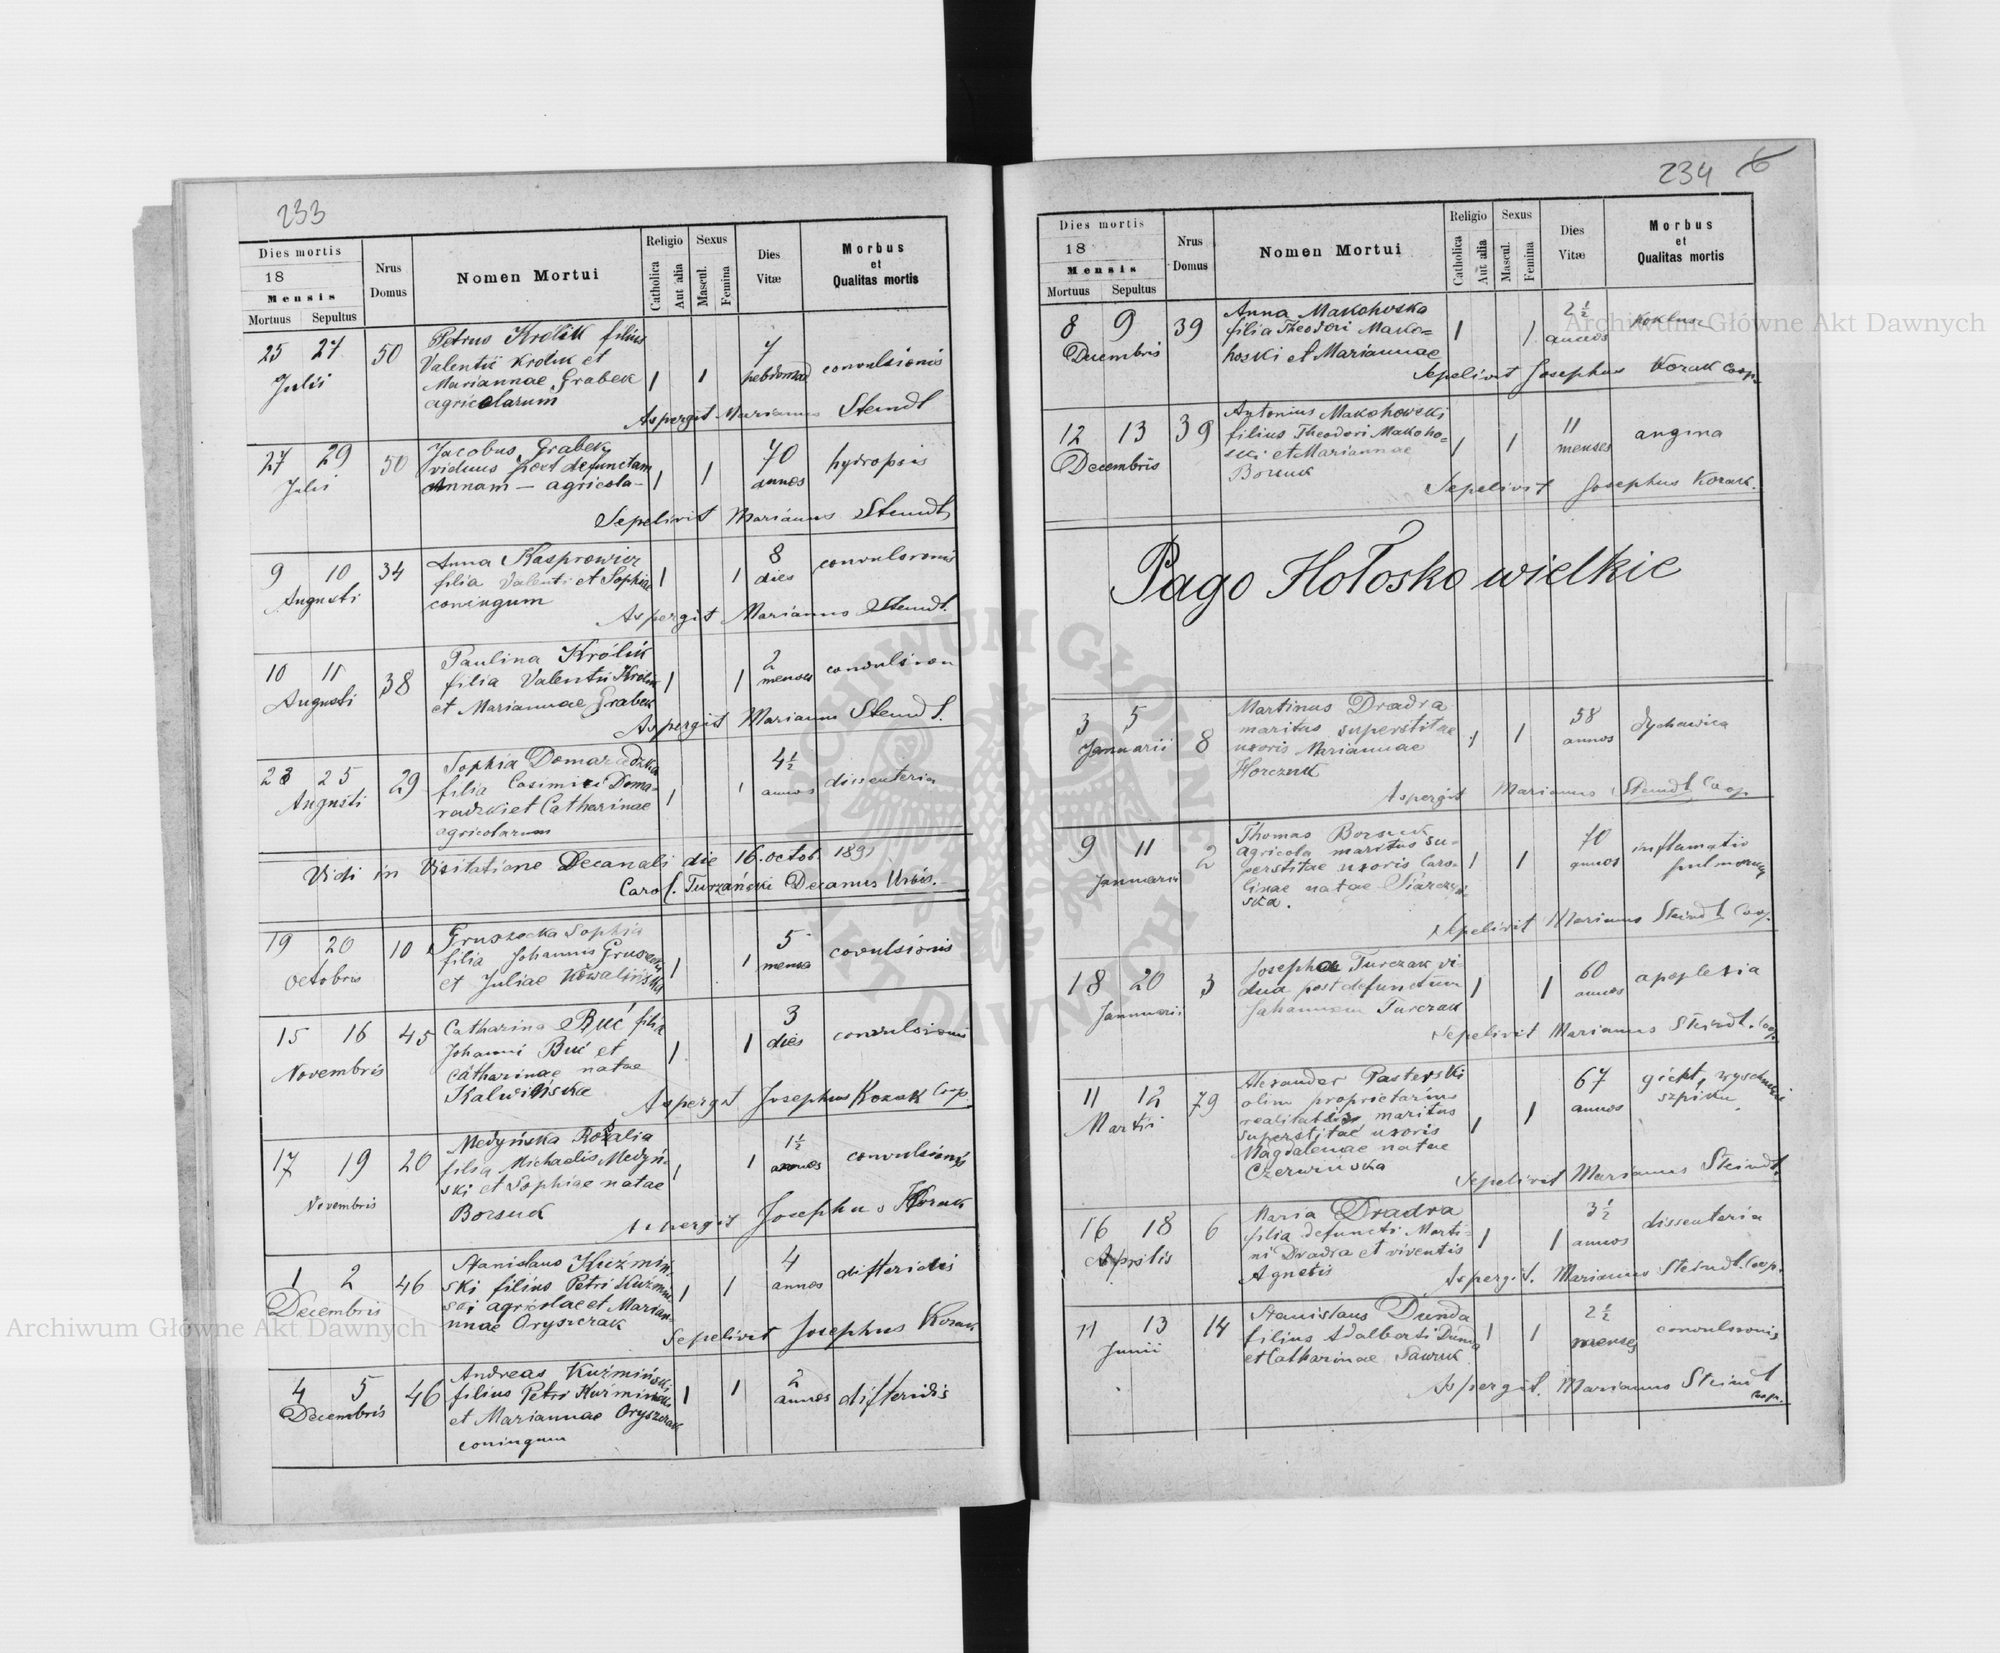 233
Dies mortis
18
Mensis
Mortuus Sepultus
Nrus
Domus
Nomen Mortui
Religio
Catholica
Aut alia
Sexus
Mascul.
Femina
Dies
Vitæ
Morbus
et
Qualitas mortis
25 27 50 Petrus Królik filius
Valentii Krolik et
Julii Mariannae Grabek 1 1 7 hebdomad convulsionis
agricolarum
Aspergit Marianus Steindl
27 29 50 Jacobus Grabek
viduus post defunctam
Julii Annam - agricola- 1 1 70 annos hydropsis
Sepelivit Marianus Steindl
9 10 34 Anna Kasprowicz
filia Valenti et Sophiae 1 1 8 dies convulsionis
Augusti coniugum
Aspergit Marianus Steindl.
10 11 38 Paulina Królik
filia Valentii Królik 1 1 2 menses convulsion
Augusti et Mariannae Grabek
Aspergit Marianus Steindl.
23 25 29 Sophia Domaradzka
filia Casimiri Doma-
Augusti radzki et Catharinae 1 1 4 1/2 annos dissenteria
agricolarum
Vidi in Visitatione Decanali die 16. octob. 1891
Carol. Turzański Decanus Urbis.
19 20 10 Gruszecka Sophia
filia Johannis Gruszecki 1 1 5 menses
Octobris et Juliae Kowalińska covulsionis
15 16 45 Catharina Buć filia
Johanni Buć et 1 1 3 dies convulsionis
Novembris Catharinae natae
Kalwińska
Aspergit Josephus Kozak Coop.
17 19 20 Medyńska Rozalia
filia Michaelis Medyń-
Novembris ski et Sophiae natae 1 1 1 1/2 annos convulsionis
Borsuk
Aspergit Josephus Kozak
1 2 46 Stanislaus Kuźmiń-
ski filius Petri Kuźmiń-
Decembris ski agricolae et Marian- 1 1 4 annos difteridis
nnae Oryszczak
Sepelivit Josephus Kozak
4 5 46 Andreas Kuźmiński
filius Petri Kuźmiński 1 1 2 annos difteridis
Decembris et Mariannae Oryszczak
coniugum
234 6
Dies mortis
18
Mensis
Mortuus Sepultus
Nrus
Domus
Nomen Mortui
Religio
Catholica
Aut alia
Sexus
Mascul.
Femina
Dies
Vitæ
Morbus
et
Qualitas mortis
8 9 39 Anna Makohoska
filia Theodori Mako= 1 1 2 1/2 annos Koklusz
Decembris hoski et Mariannae
Sepelivit Josephus Kozak Coop.
12 13 39 Antonius Makohowski
filius Theodori Makoho= 1 1 11 menses angina
Decembris ski et Mariannae
Borsuk
Sepelivit Josephus Kozak.
Pago Hołosko wielkie
3 5 8 Martinus Dradra
maritus superstitae
Januarii uxoris Mariannae 1 1 58 annos dychawica
Horczuk
Aspergit Marianus Steindl Coop
9 11 2 Thomas Borsuk
agricola maritus su-
Januarii perstitae uxoris Caro- 1 1 70 annos inflamatio
linae natae pulmonum
ska.
Sepelivit Marianus Steindl Coop.
18 20 3 Josepha Turczak vi-
dua post defunctum 1 1 60 annos apoplexia
Januarii Johannem Turczak
Sepelivit Marianus Steindl. Coop.
11 12 79 Alexander Pasterski
olim proprietarius
Martii realitatis maritus 1 1 67 annos gicht, wyschnięcie
superstitae uxoris szpiku
Magdalenae natae
Czerwińska
Sepelivit Marianus Steindl.
16 18 6 Maria Dradra
filia defuncti Marti-
Aprilis ni Dradra et viventis 1 1 3 1/2 annos dissenteria
Agnetis
Aspergit. Marianus Steindl. Coop.
11 13 14 Stanislaus Dunda
filius Adalberti Dunda 1 1 2 1/2 menses convulsionis
Junii et Catharinae Sawruk
Aspergit. Marianus Steindl
Coop.
Archiwum Główne Akt Dawnych
Archiwum Główne Akt Dawnych
ARCHIWUM GŁÓWNE AKT DAWNYCH